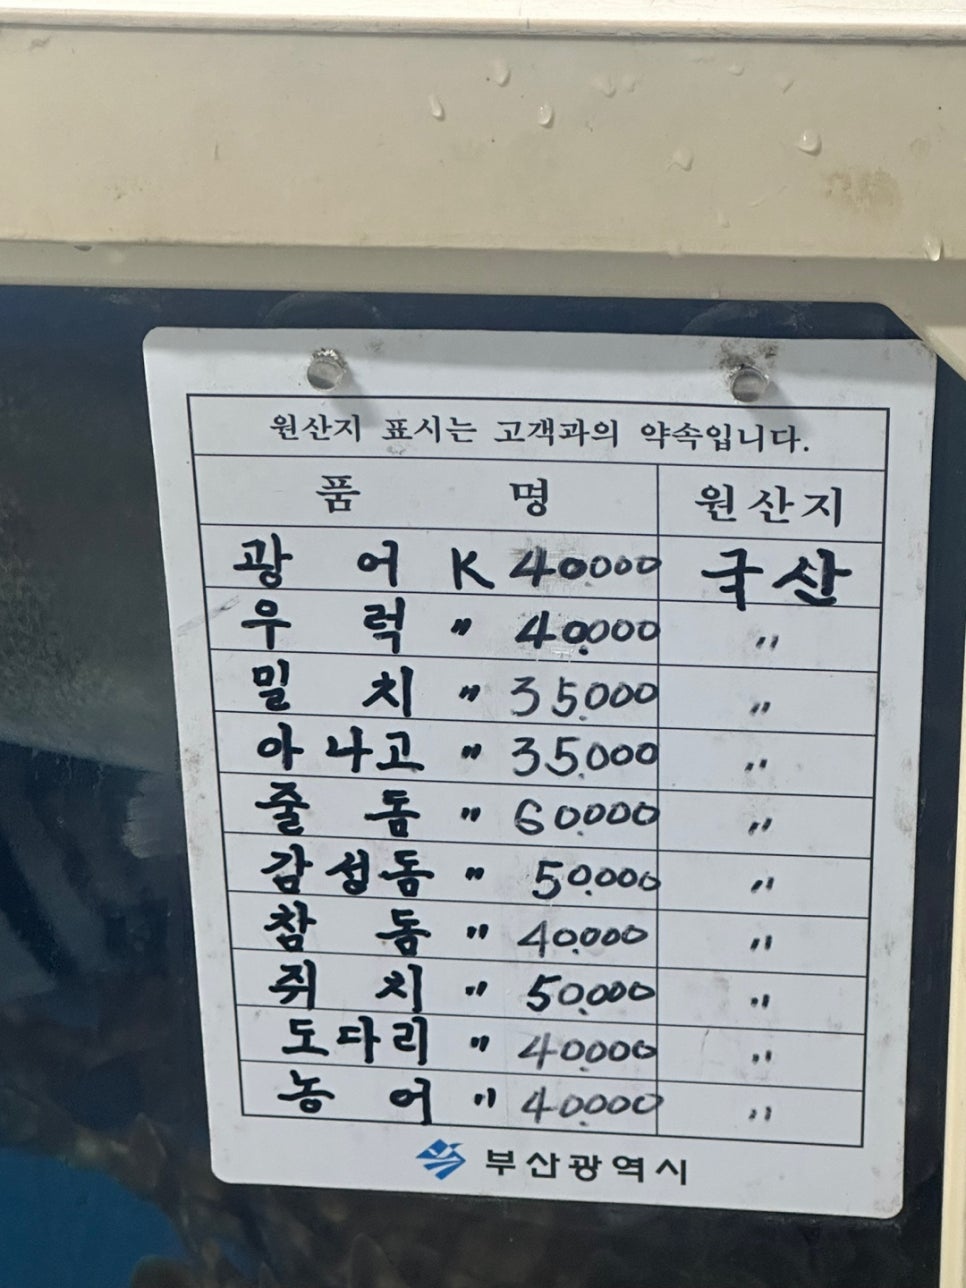 원산지 표시는 고객과의 약속입니다.
품 명 원산지
광 어 K 40.000 국산
우 럭 〃 40.000 〃
밀 치 〃 35.000 〃
아나고 〃 35.000 〃
줄 돔 〃 60.000 〃
감성돔 〃 50.000 〃
참 돔 〃 40.000 〃
쥐 치 〃 50.000 〃
도다리 〃 40.000 〃
농 어 〃 40.000 〃
부산광역시